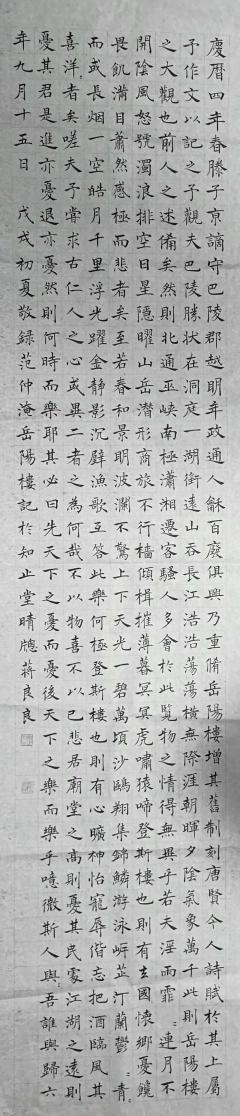 慶曆四年春滕子京謫守巴陵郡越明年政通人龢百廢俱興乃重脩岳陽樓增其舊制刻唐賢今人詩賦於其上屬
予作文以記之予觀夫巴陵勝狀在洞庭一湖銜遠山吞長江浩浩蕩蕩橫無際涯朝暉夕陰氣象萬千此則岳陽樓
之大觀也前人之述備矣然則北通巫峽南極瀟湘遷客騷人多會於此覽物之情得無異乎若夫淫雨霏〻連月不
開陰風怒號濁浪排空日星隱曜山岳潛形商旅不行檣傾楫摧薄暮冥冥虎嘯猿啼登斯樓也則有去國懷鄉憂讒
畏飢滿目蕭然感極而悲者矣至若春和景明波瀾不驚上下天光一碧萬頃沙鷗翔集錦鱗游泳岸芷汀蘭鬱〻青〻
而或長烟一空皓月千里浮光躍金靜影沉璧漁歌互答此樂何極登斯樓也則有心曠神怡寵辱偕忘把酒臨風其
喜洋〻者矣嗟夫予嘗求古仁人之心或異二者之為何哉不以物喜不以己悲居廟堂之高則憂其民處江湖之遠則
憂其君是進亦憂退亦憂然則何時而樂耶其必曰先天下之憂而憂後天下之樂而樂乎噫微斯人與吾誰與歸六
年九月十五日 戊戌初夏敬録范仲淹岳陽樓記於知止堂晴牕蔣良良